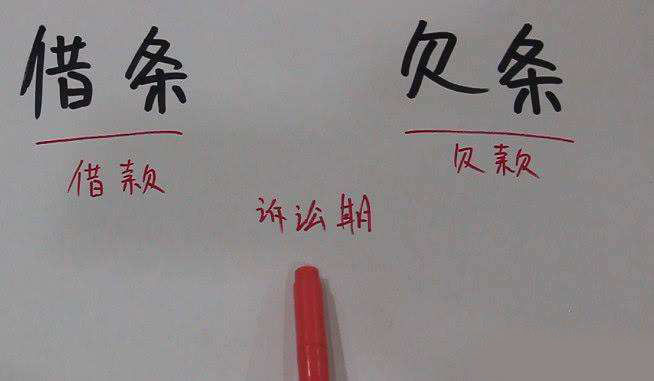 借条 欠条
借款 欠款
诉讼期